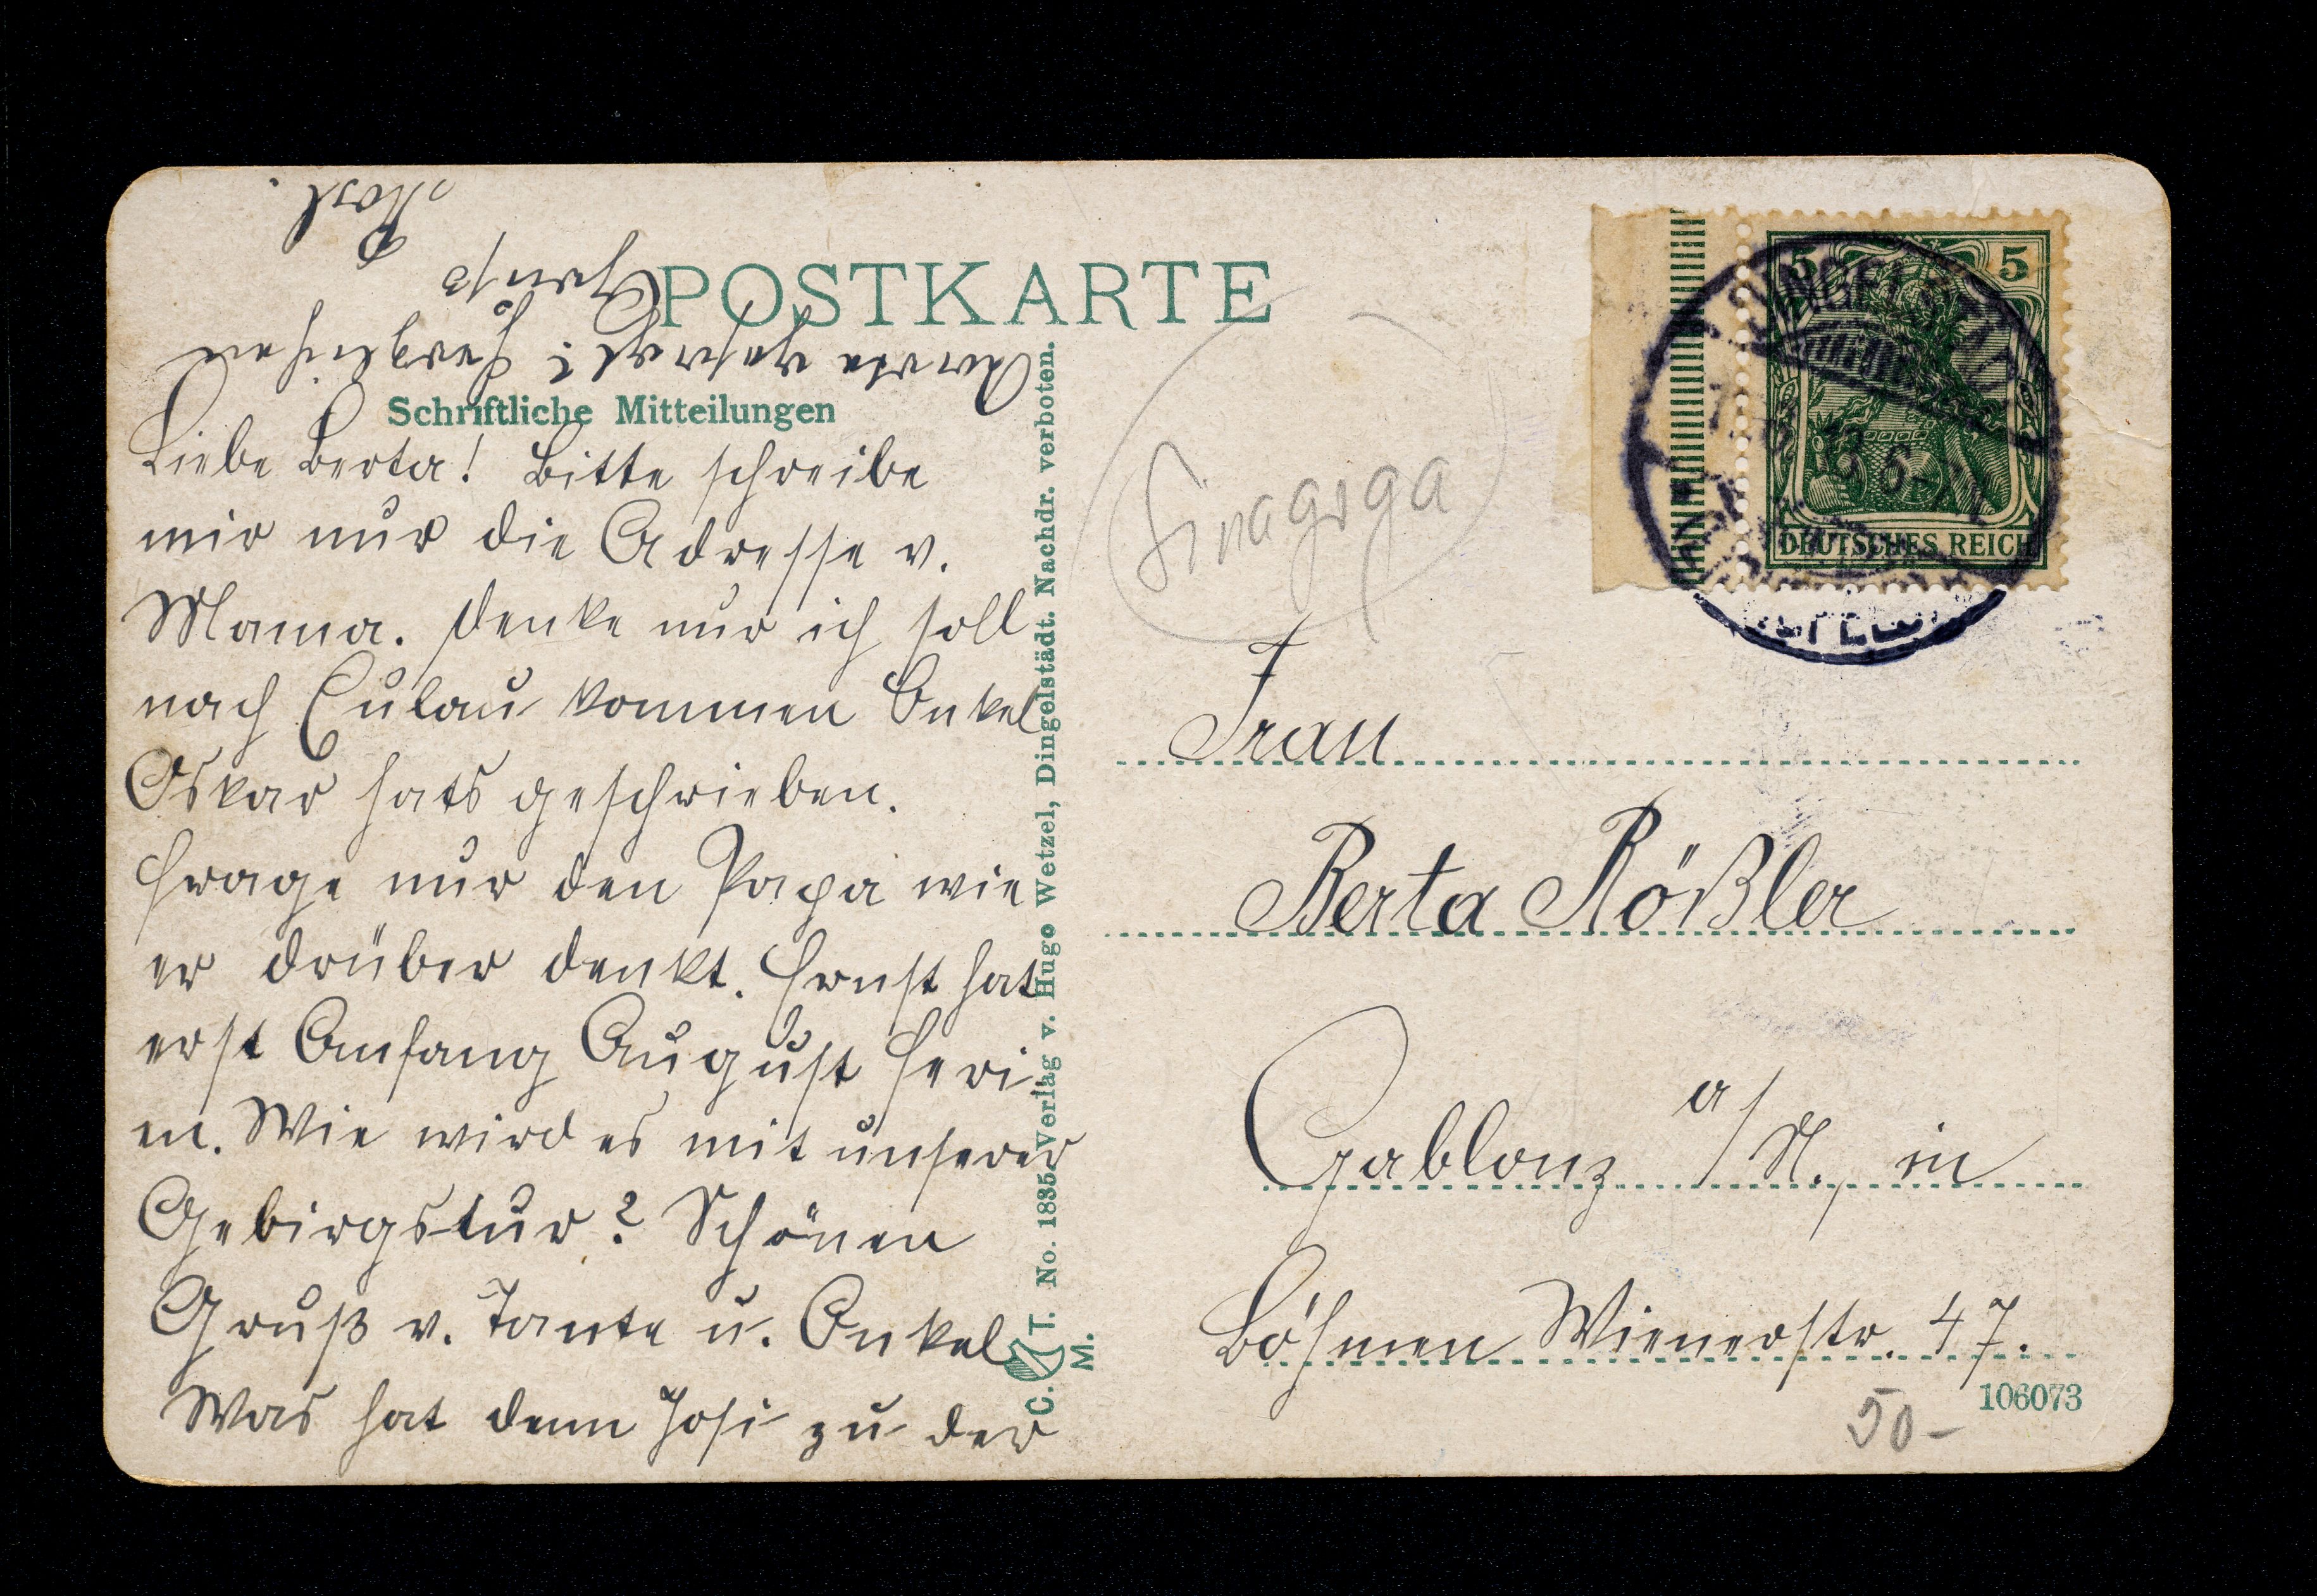 POSTKARTE
Schriftliche Mitteilungen
Liebe Berta! Bitte schreibe
mir nur die Adresse v.
Mama. Denke nur ich soll
nach Eulau kommen Onkel
Oskar hats geschrieben.
Frage nur den Papa wie
er drüber denkt. Ernst hat
erst Anfang August Feri-
en. Wie wird es mit unserer
Gebirgstur? Schönen
Gruß v. Tante u. Onkel
Was hat denn Josi zu der
Karte gesagt? Herzlichen
Gruß
C. T. M. No. 1835 Verlag v. Hugo Wetzel, Dingelstädt. Nachdr. verboten.
Sinagoga
5 5
DEUTSCHES REICH
Frau
Berta Rößler
Gablonz a/N., in
Böhmen Wienerstr. 47.
106073
50-